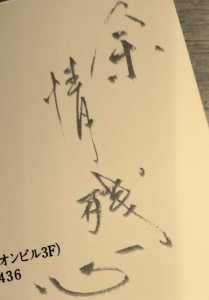 余情残心
オンビル3F)
436